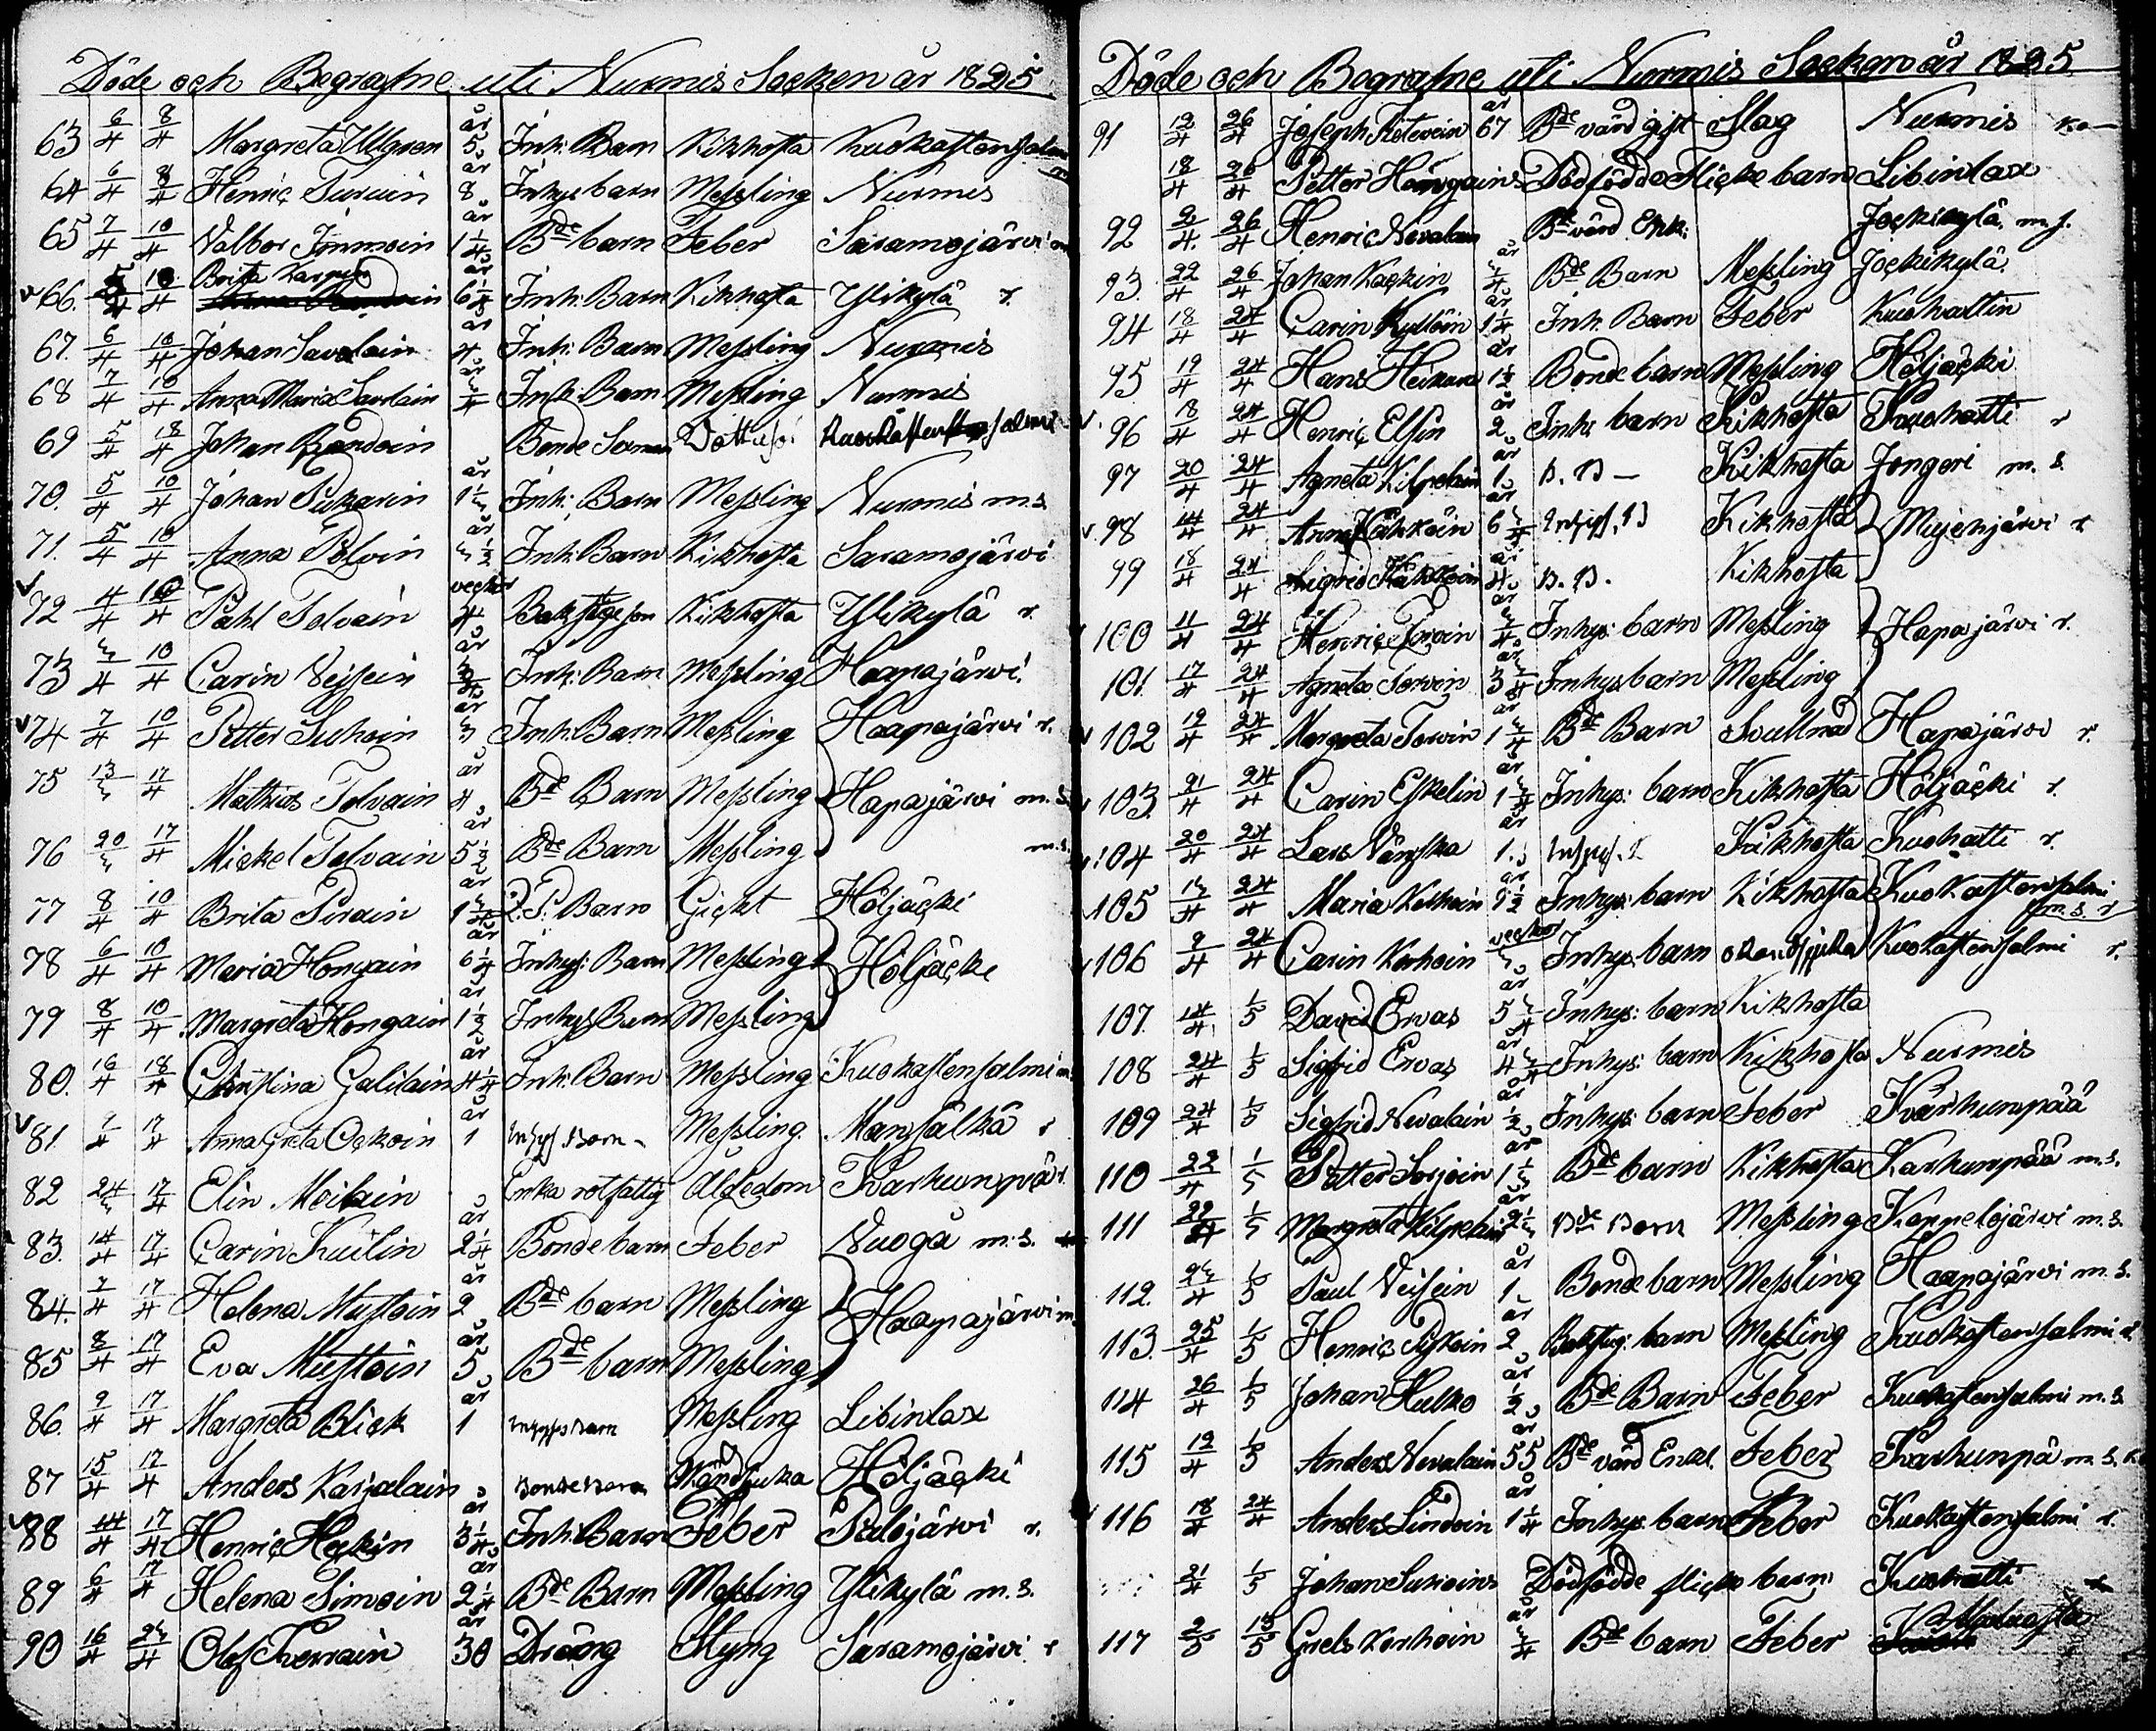 Döde och Begrafne uti Nurmis Socken år 1825
63 6/4 8/4 Margreta Ullgren 5 år Inh: Barn Kikhosta Kuokastensalmi
64 6/4 8/4 Henric Turuin 8 år Inhys barn Messling Nurmis
65 7/4 10/4 Valbor Immoin 1 1/4 år Bde barn Feber Saramojärvi
v 66. 5/4 10/4 Brita 6 1/4 år Inh: Barn Kikhosta Ylikylä r.
67. 6/4 10/4 Johan Savolain 4 år Inh: Barn Messling Nurmis
68 7/4 10/4 Anna Maria Savolain 3/4 år Inh: Barn Messling Nurmis
69 5/4 18/4 Johan Randoin Bonde Sonen Kuokastensalmi
70. 5/4 10/4 Johan Pukarin 1 1/2 år Inh: Barn Messling Nurmis m.s.
71. 5/4 10/4 Anna Polvin 3 1/2 år Inh: Barn Kikhosta Saramojärvi
v 72 4/4 10/4 Pahl Tolvain 4 veckor Backstuguson Kikhosta Ylikylä r.
73 3/4 10/4 Carin Veisein 3/4 år Inh: Barn Messling Haapajärvi
v 74 7/4 10/4 Petter Suhoin 3 år Inh: Barn Messling Haapajärvi r.
75 13/3 17/4 Mathias Tolvain 4 år Bde Barn Messling Hapajärvi m.s.
76 20/3 17/4 Mickel Tolvain 5 1/2 år Bde Barn Messling m.s.
77 8/4 10/4 Brita Pirain 1 3/4 år Barn Gickt Höljäcki
78 6/4 10/4 Maria Hongain 6 1/4 år Inhys: Barn Messling Höljäcke
79 8/4 10/4 Margreta Hongain 1 1/2 år Inhys Barn Messling
80. 16/4 18/4 Christina Galilain 4 1/4 år Inh: Barn Messling Kuokastensalmi
v 81. 9/4 17/4 Anna Greta Ockoin 1 år Inhys Barn Messling Mansälkä r
82 24/3 17/4 Elin Moilain Enka rotfattig Ålderdom Karhunpää r.
83. 14/4 17/4 Carin Kuilin 2 1/4 år Bonde barn Feber Vuoga m.s.
84. 7/4 17/4 Helena Mustoin 2 år Bde barn Messling Haapajärvi m.
85 8/4 17/4 Eva Mustoin 5 år Bde barn Messling
86. 9/4 17/4 Margreta Blick 1 år Inhyses Barn Messling Libinlax
87 15/4 17/4 Anders Karjalain Bonde Barn Okändsjuka Höljäcki
v 88 14/4 17/4 Henric Hockin 3 1/4 år Inh: Barn Feber Palojärvi r.
89 6/4 17/4 Helena Timoin 2 1/4 år Bde Barn Messling Ylikylä m.s.
90 16/4 23/4 Olof Kerrain 30 år Dräng Styng Saramojärvi r
Döde och Begrafne uti Nurmis Socken år 1825
91 13/4 26/4 Joseph Kitevein 67 år Bde värd gift Slag Nurmis
18/4 26/4 Petter Hongains Dödfödde Flicke barn Libinlax
92 2/4 26/4 Henric Nevalain Bde värd Enk: Jockikylä m.s.
93. 22/4 26/4 Johan Kackin 3/4 år Bde Barn Messling Jockikylä
94 18/4 24/4 Carin Kyllöin 1 1/4 år Inh. Barn Feber Kuohattin
95 19/4 24/4 Hans Heikura 1 1/2 år Bonde barn Messling Höljäcki
v. 96 18/4 24/4 Henric Elfin 2 år Inhs barn Kikhosta Kuohatti r
97 20/4 24/4 Agneta Kilpelain 1 år B. B Kikhosta Jongeri m.s.
v. 98 14/4 24/4 Anna Käkköin 6 3/4 år Inhys. B Kikhosta Mujenjärvi r
99 18/4 24/4 Sigrid Käkköin 4 år B. B. Kikhosta
100 11/4 24/4 Henric Torvin 3/4 år Inhys: barn Messling Hapajärvi r.
101. 17/4 24/4 Agneta Torvin 3 3/4 år Inhys barn Messling
v 102 19/4 24/4 Margreta Torvin 1 3/4 år Bde Barn Svullnad Hapajärvi r.
v 103. 21/4 24/4 Carin Eskelin 1 3/4 år Inhys: barn Kikhosta Höljäcki r.
v 104 20/4 24/4 Lars Vänska 1 år Inhys. B Kikhosta Kuohatti r.
v 105 13/4 24/4 Maria Korhoin 1/2 år Inhys: barn Kikhosta Kuokastensalmi m.s. r
v 106 9/4 24/4 Carin Korhoin 3 veckor Inhys. barn okändsjuka Kuokastensalmi r.
107. 14/4 1/5 David Ervas 5 3/4 år Inhys: barn Kikhosta
108 24/4 1/5 Sigfrid Ervas 4 3/4 år Inhys: barn Kikhosta Nurmis
109 24/4 1/5 Sigfrid Nevalain 1/2 år Inhys: barn Feber Karhunpää
110 22/4 1/5 Petter Sorjoin 1 1/3 år Bde barn Kikhosta Karhunpää m.s.
111 22/4 1/5 Margreta Kilpelain 2 1/2 år Bde Barn Messling Koppelojärvi m.s.
112. 23/4 1/5 Paul Veisein 1 år Bonde barn Messling Haapajärvi m.s.
113. 25/4 1/5 Henric Piskoin 2 år Bakstug: barn Messling Kuokastensalmi r
114 26/4 1/5 Johan Hulko 1/2 år Bde Barn Feber Kuokastensalmi m.s.
115 19/4 1/5 Anders Nevalain 55 år Bde värd Enkl. Feber Karhunpä m.s.
v 116 18/4 24/4 Anders Lindoin 1 1/4 år Inhys. barn Feber Kuokastensalmi r.
21/4 1/5 Johan Suhoins Dödfödde flicke barn Kuohatti
117 2/5 15/5 Grels Korhoin 3/4 år Bde barn Feber